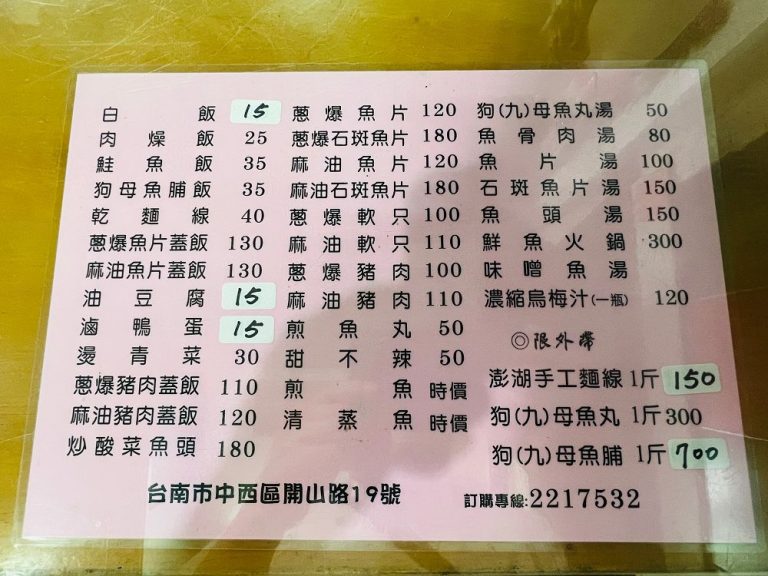 白飯 15
肉燥飯 25
鮭魚飯 35
狗母魚脯飯 35
乾麵線 40
蔥爆魚片蓋飯 130
麻油魚片蓋飯 130
油豆腐 15
滷鴨蛋 15
燙青菜 30
蔥爆豬肉蓋飯 110
麻油豬肉蓋飯 120
炒酸菜魚頭 180
蔥爆魚片 120
蔥爆石斑魚片 180
麻油魚片 120
麻油石斑魚片 180
蔥爆軟只 100
麻油軟只 110
蔥爆豬肉 100
麻油豬肉 110
煎魚丸 50
甜不辣 50
煎魚 時價
清蒸魚 時價
狗(九)母魚丸湯 50
魚骨肉湯 80
魚片湯 100
石斑魚片湯 150
魚頭湯 150
鮮魚火鍋 300
味噌魚湯
濃縮烏梅汁(一瓶) 120
◎限外帶
澎湖手工麵線 1斤 150
狗(九)母魚丸 1斤 300
狗(九)母魚脯 1斤 700
台南市中西區開山路19號
訂購專線:2217532